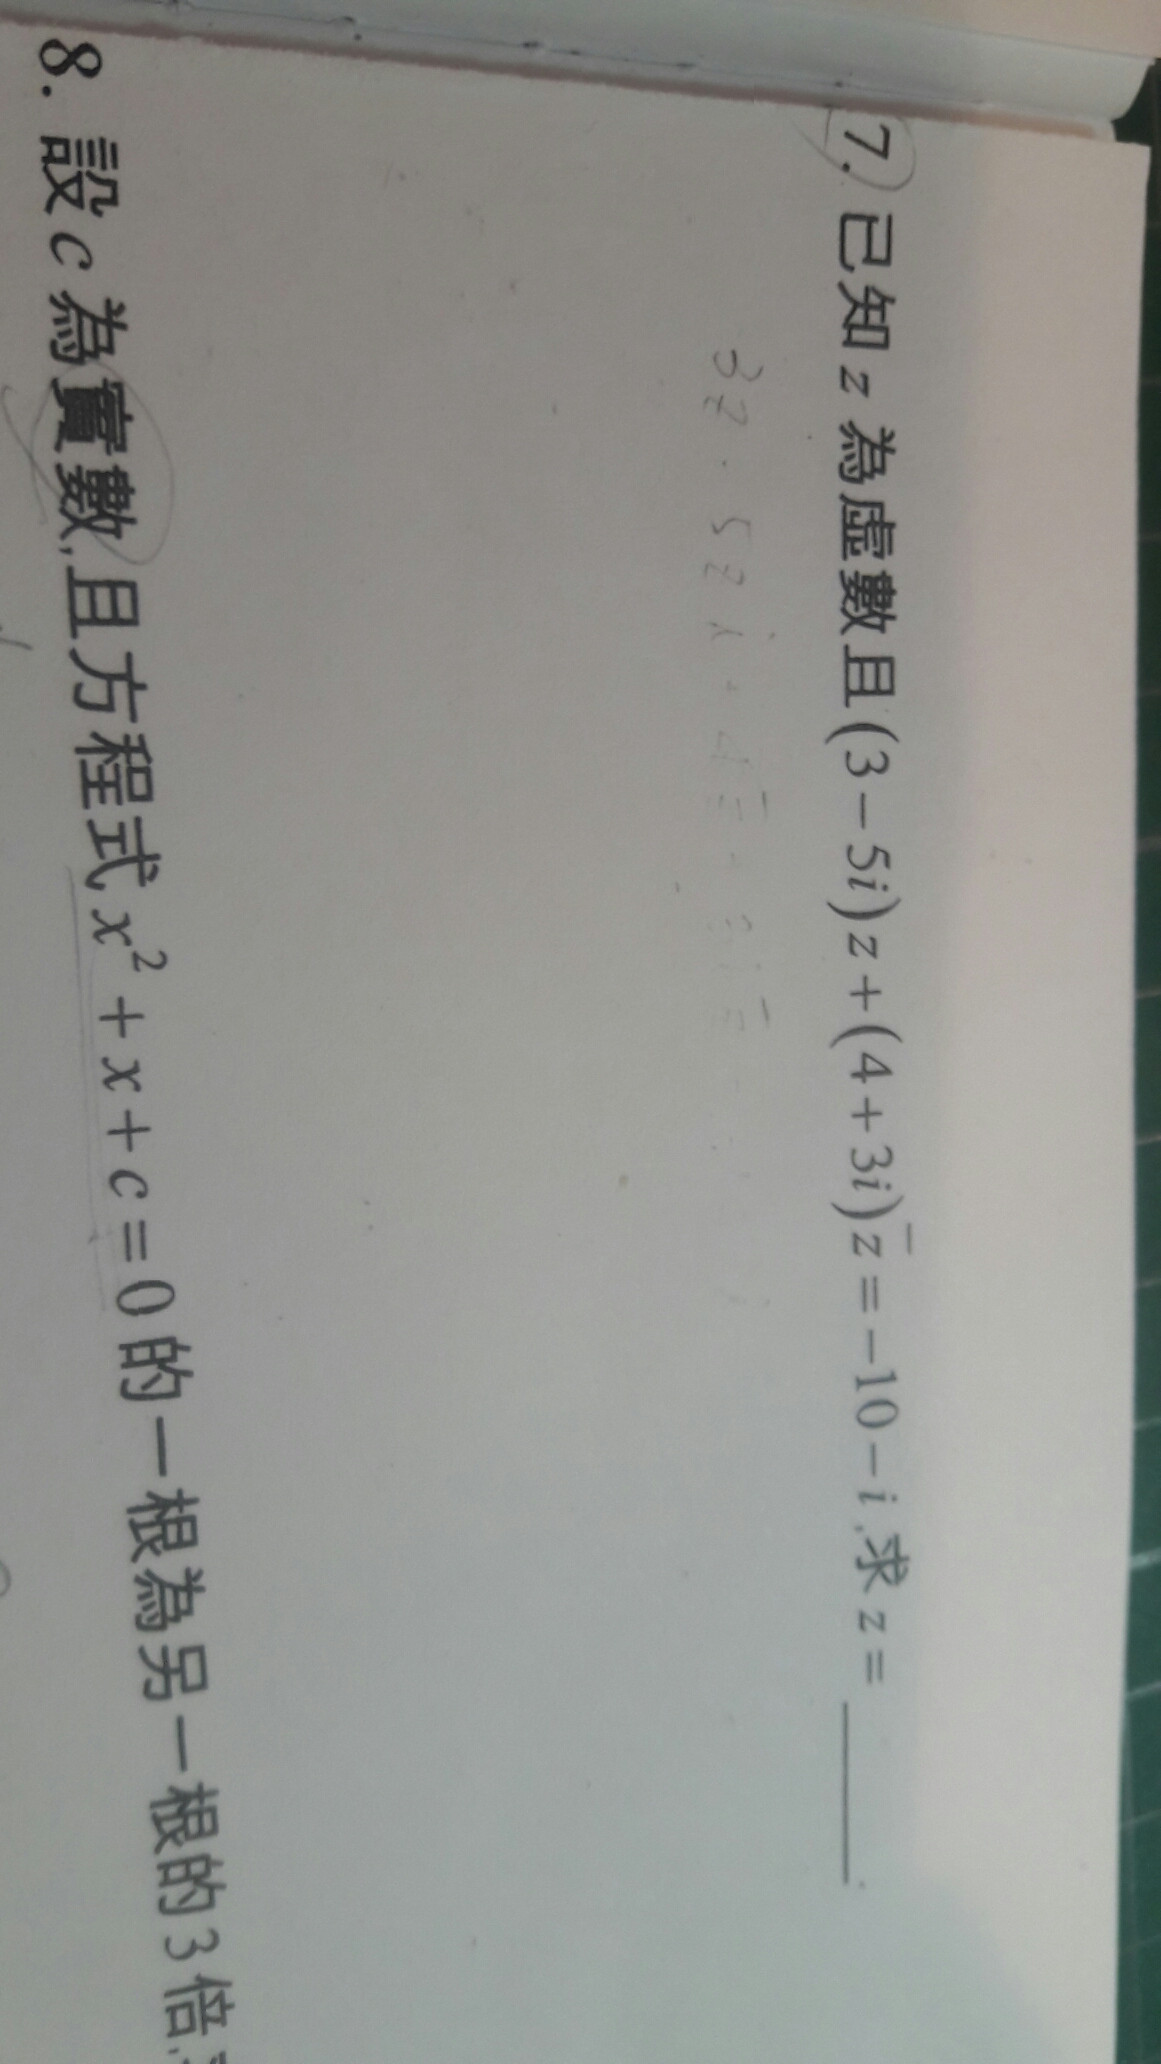 7. 已知 z 為虛數且(3−5i)z+(4+3i)z̄=−10−i,求z=______.
3z - 5zi + 4z̄ + 3iz̄
8. 設c為實數,且方程式x²+x+c=0的一根為另一根的3倍,